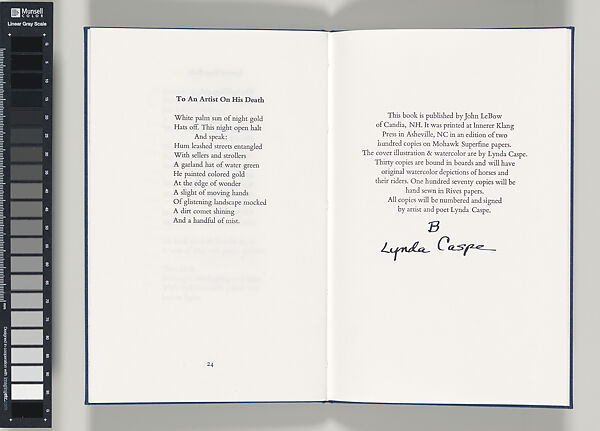 Munsell
COLOR
Linear Gray Scale
To An Artist On His Death
White palm sun of night gold
Hats off. This night open halt
And speak:
Hum leashed streets entangled
With sellers and strollers
A garland hat of water green
He painted colored gold
At the edge of wonder
A slight of moving hands
Of glistening landscape mocked
A dirt comet shining
And a handful of mist.
24
This book is published by John LeBow
of Candia, NH. It was printed at Innerer Klang
Press in Asheville, NC in an edition of two
hundred copies on Mohawk Superfine papers.
The cover illustration & watercolor are by Lynda Caspe.
Thirty copies are bound in boards and will have
original watercolor depictions of horses and
their riders. One hundred seventy copies will be
hand sewn in Rives papers.
All copies will be numbered and signed
by artist and poet Lynda Caspe.
B
Lynda Caspe